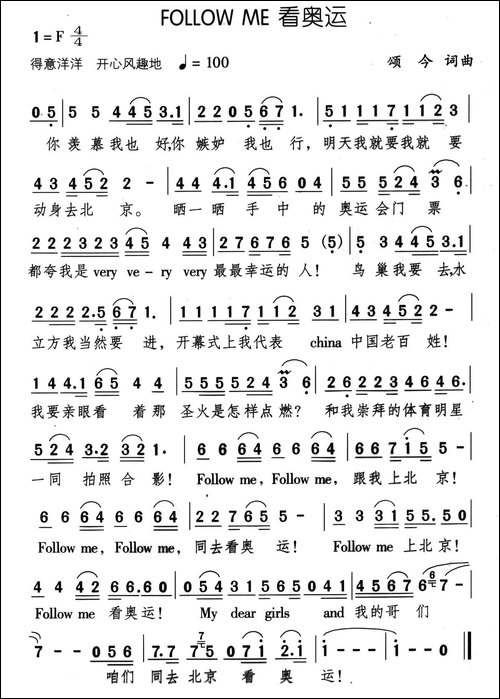 FOLLOW ME 看奥运
1=F 4/4
得意洋洋 开心风趣地 ♩= 100 颂 今 词曲
0 5 | 5 5 4 4 5 3.1 | 2 2 0 5 6 7 1. | 5 1 1 1 7 1 1 2 3 |
你 羡 慕 我也 好,你 嫉妒 我 也 行, 明天我就要我就 要
4 3 4 5 2 2 - | 4 4 4.1 4 5 6 0 4 | 5 5 5 5 2 4 3 6 |
动身去北 京。 晒一 晒 手 中 的 奥运会门 票
2 2 2 3 2 3 4 5 4 4 3 | 2 7 6 7 6 5 (5) | 5 3 4 4 5 3.1 |
都夸我是 very ve-ry very 最最幸运的 人! 鸟 巢我要 去,水
2 2 2 2.5 6 7 1. | 7 1 1 1 1 1 2 3 0 | 0 4 3 4 5 2 2 - |
立方我当然要 进, 开幕式上我代表 china 中国老百 姓!
1 4 4.1 6 5 4 4 | 5 5 5 5 2 4 3 6 | 2 6 2 2 3 4 6 4 6. |
我要亲眼看 着那 圣火是怎样点 燃? 和我崇拜的体育明星
5 2 4 3.2 3 2 1. | 6 6 6 4 6 6 6 4 | 6 6 7 1 5 5 - |
一同 拍照 合 影! Follow me, Follow me, 跟我上北 京!
6 6 6 4 6 6 6 4 | 2 2 7 6 5 5 - | 3 3 3 1 5 5.5 0 |
Follow me, Follow me, 同去看奥 运! Follow me 上北京!
4 4 4 2 6 6.6 0 | 0 5 0 5 5 5 | 4 5 6 7 - |
Follow me 看奥运! My dear girls and 我的哥 们
7 - 0 5 | 7.7 7 5 0 7 1.2 | 1 - - - | 1 - - 0 ‖
咱们 同去 北京 看 奥 运!